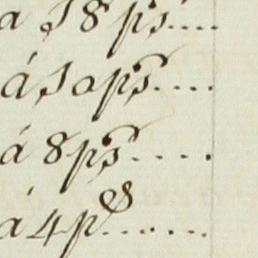 á 18 ps....
á 10 ps....
á 8 ps.....
á 4 ps.......